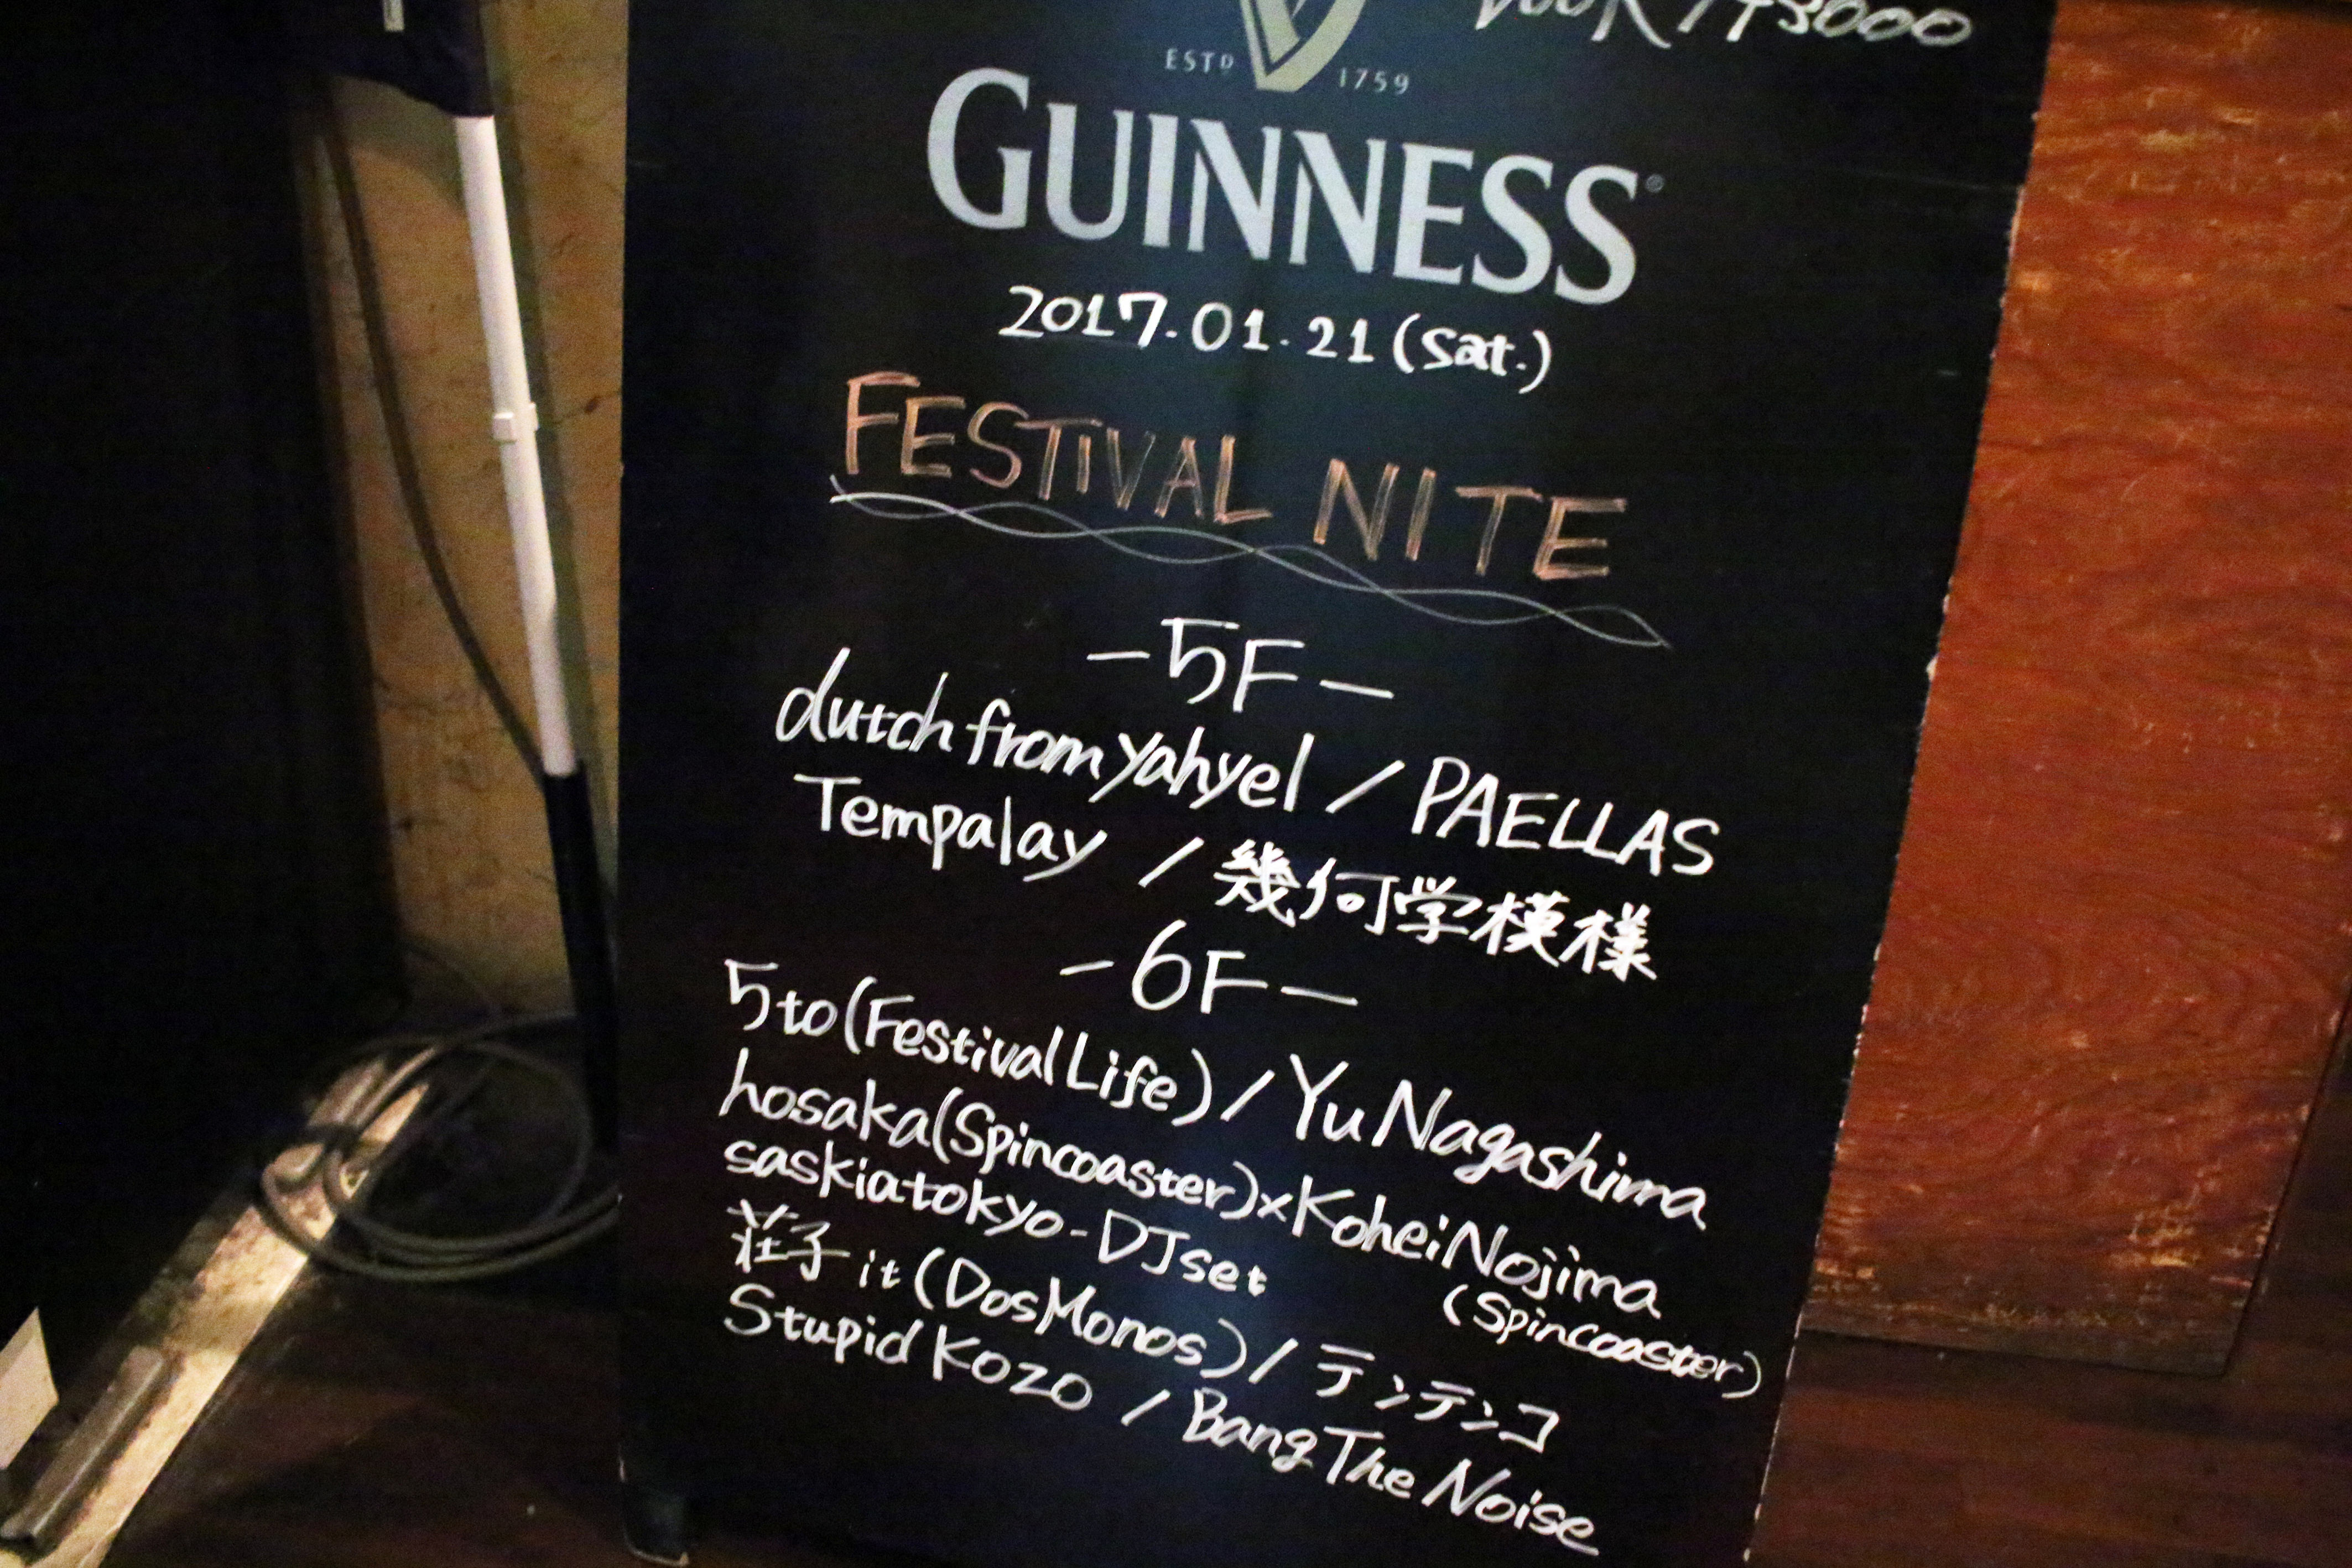 ESTD 1759
GUINNESS®
2017.01.21 (Sat.)
FESTIVAL NITE
-5F-
dutch from yahyel / PAELLAS
Tempalay / 幾何学模様
-6F-
5to (Festival Life) / Yu Nagashima
hosaka (Spincoaster) x Kohei Nojima
(Spincoaster)
saskiatokyo - DJ set
荘子 it (Dos Monos) / テンテンコ
Stupid Kozo / Bang The Noise